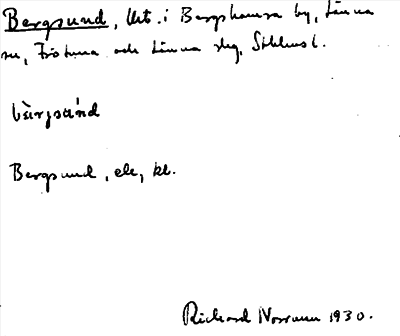 Bergsund, lht. i Bergshamra by, Länna
sn, Frötuna och Länna skg, Sthlms l.
bærgsúnd
Bergsund, ek, kl.
Richard Norrman 1930.